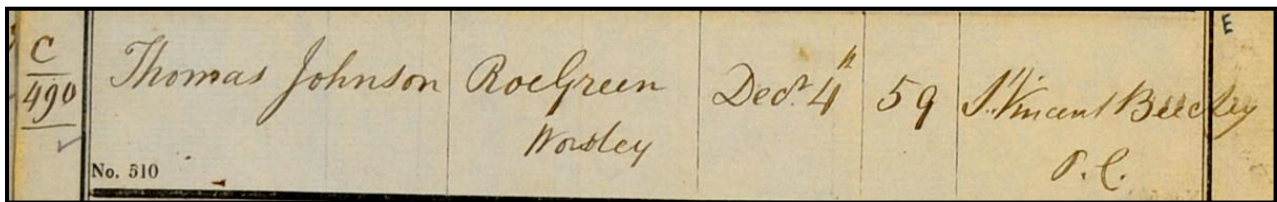 C
490
Thomas Johnson
Roe Green
Worsley
Decr. 4th
59
St. Vincent Beechey
P. C.
No. 510
E